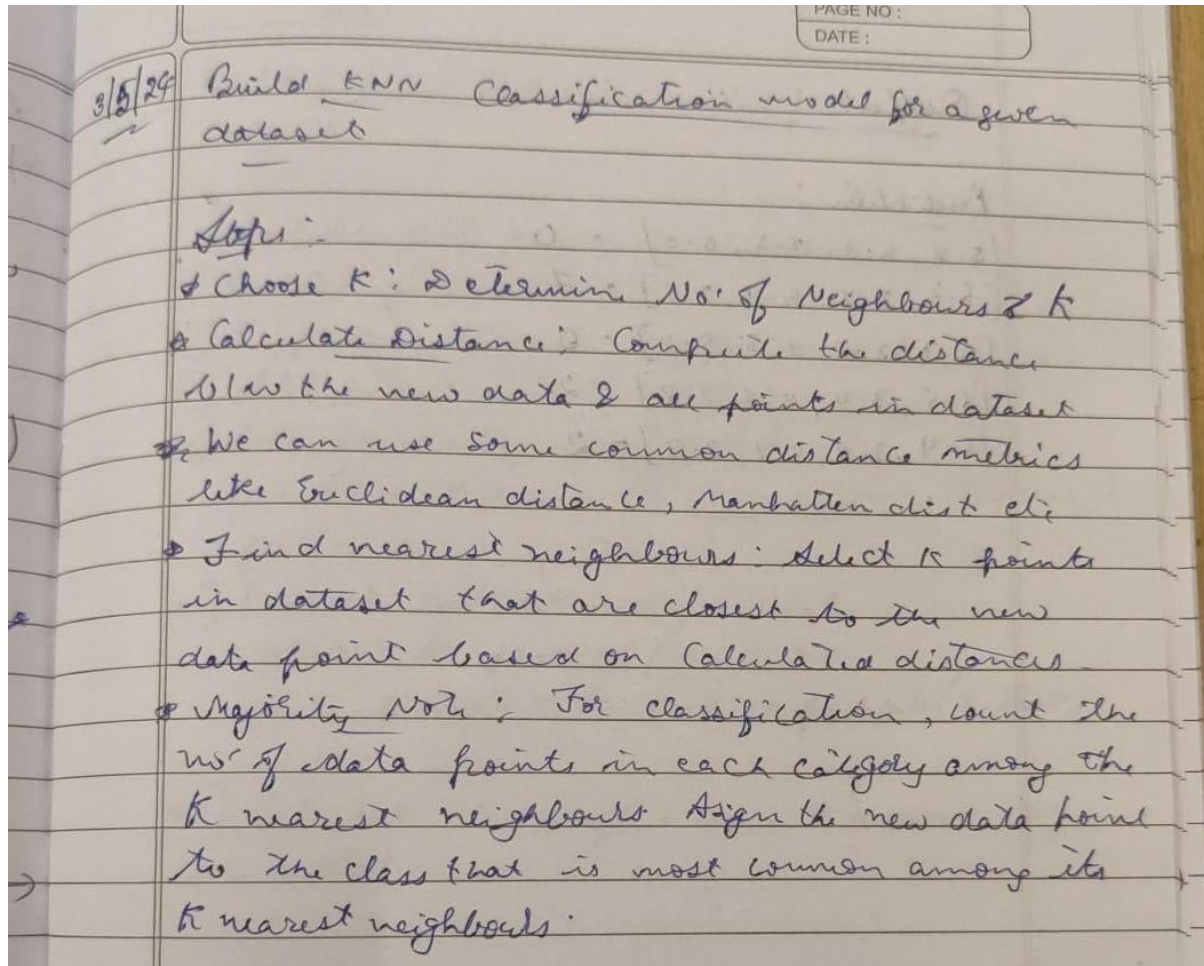 PAGE NO :
DATE :
3/5/24 Build KNN Classification model for a given
dataset
Steps :-
Choose K : Determine No. of Neighbours K
Calculate Distance : Compute the distance
b/w the new data & all points in dataset
We can use some common distance metrics
like Euclidean distance, Manhatten dist etc
Find nearest neighbours : Select K points
in dataset that are closest to the new
data point based on Calculated distances
Majority Vote : For classification, count the
no. of data points in each category among the
K nearest neighbours Asign the new data point
to the class that is most common among its
K nearest neighbours.